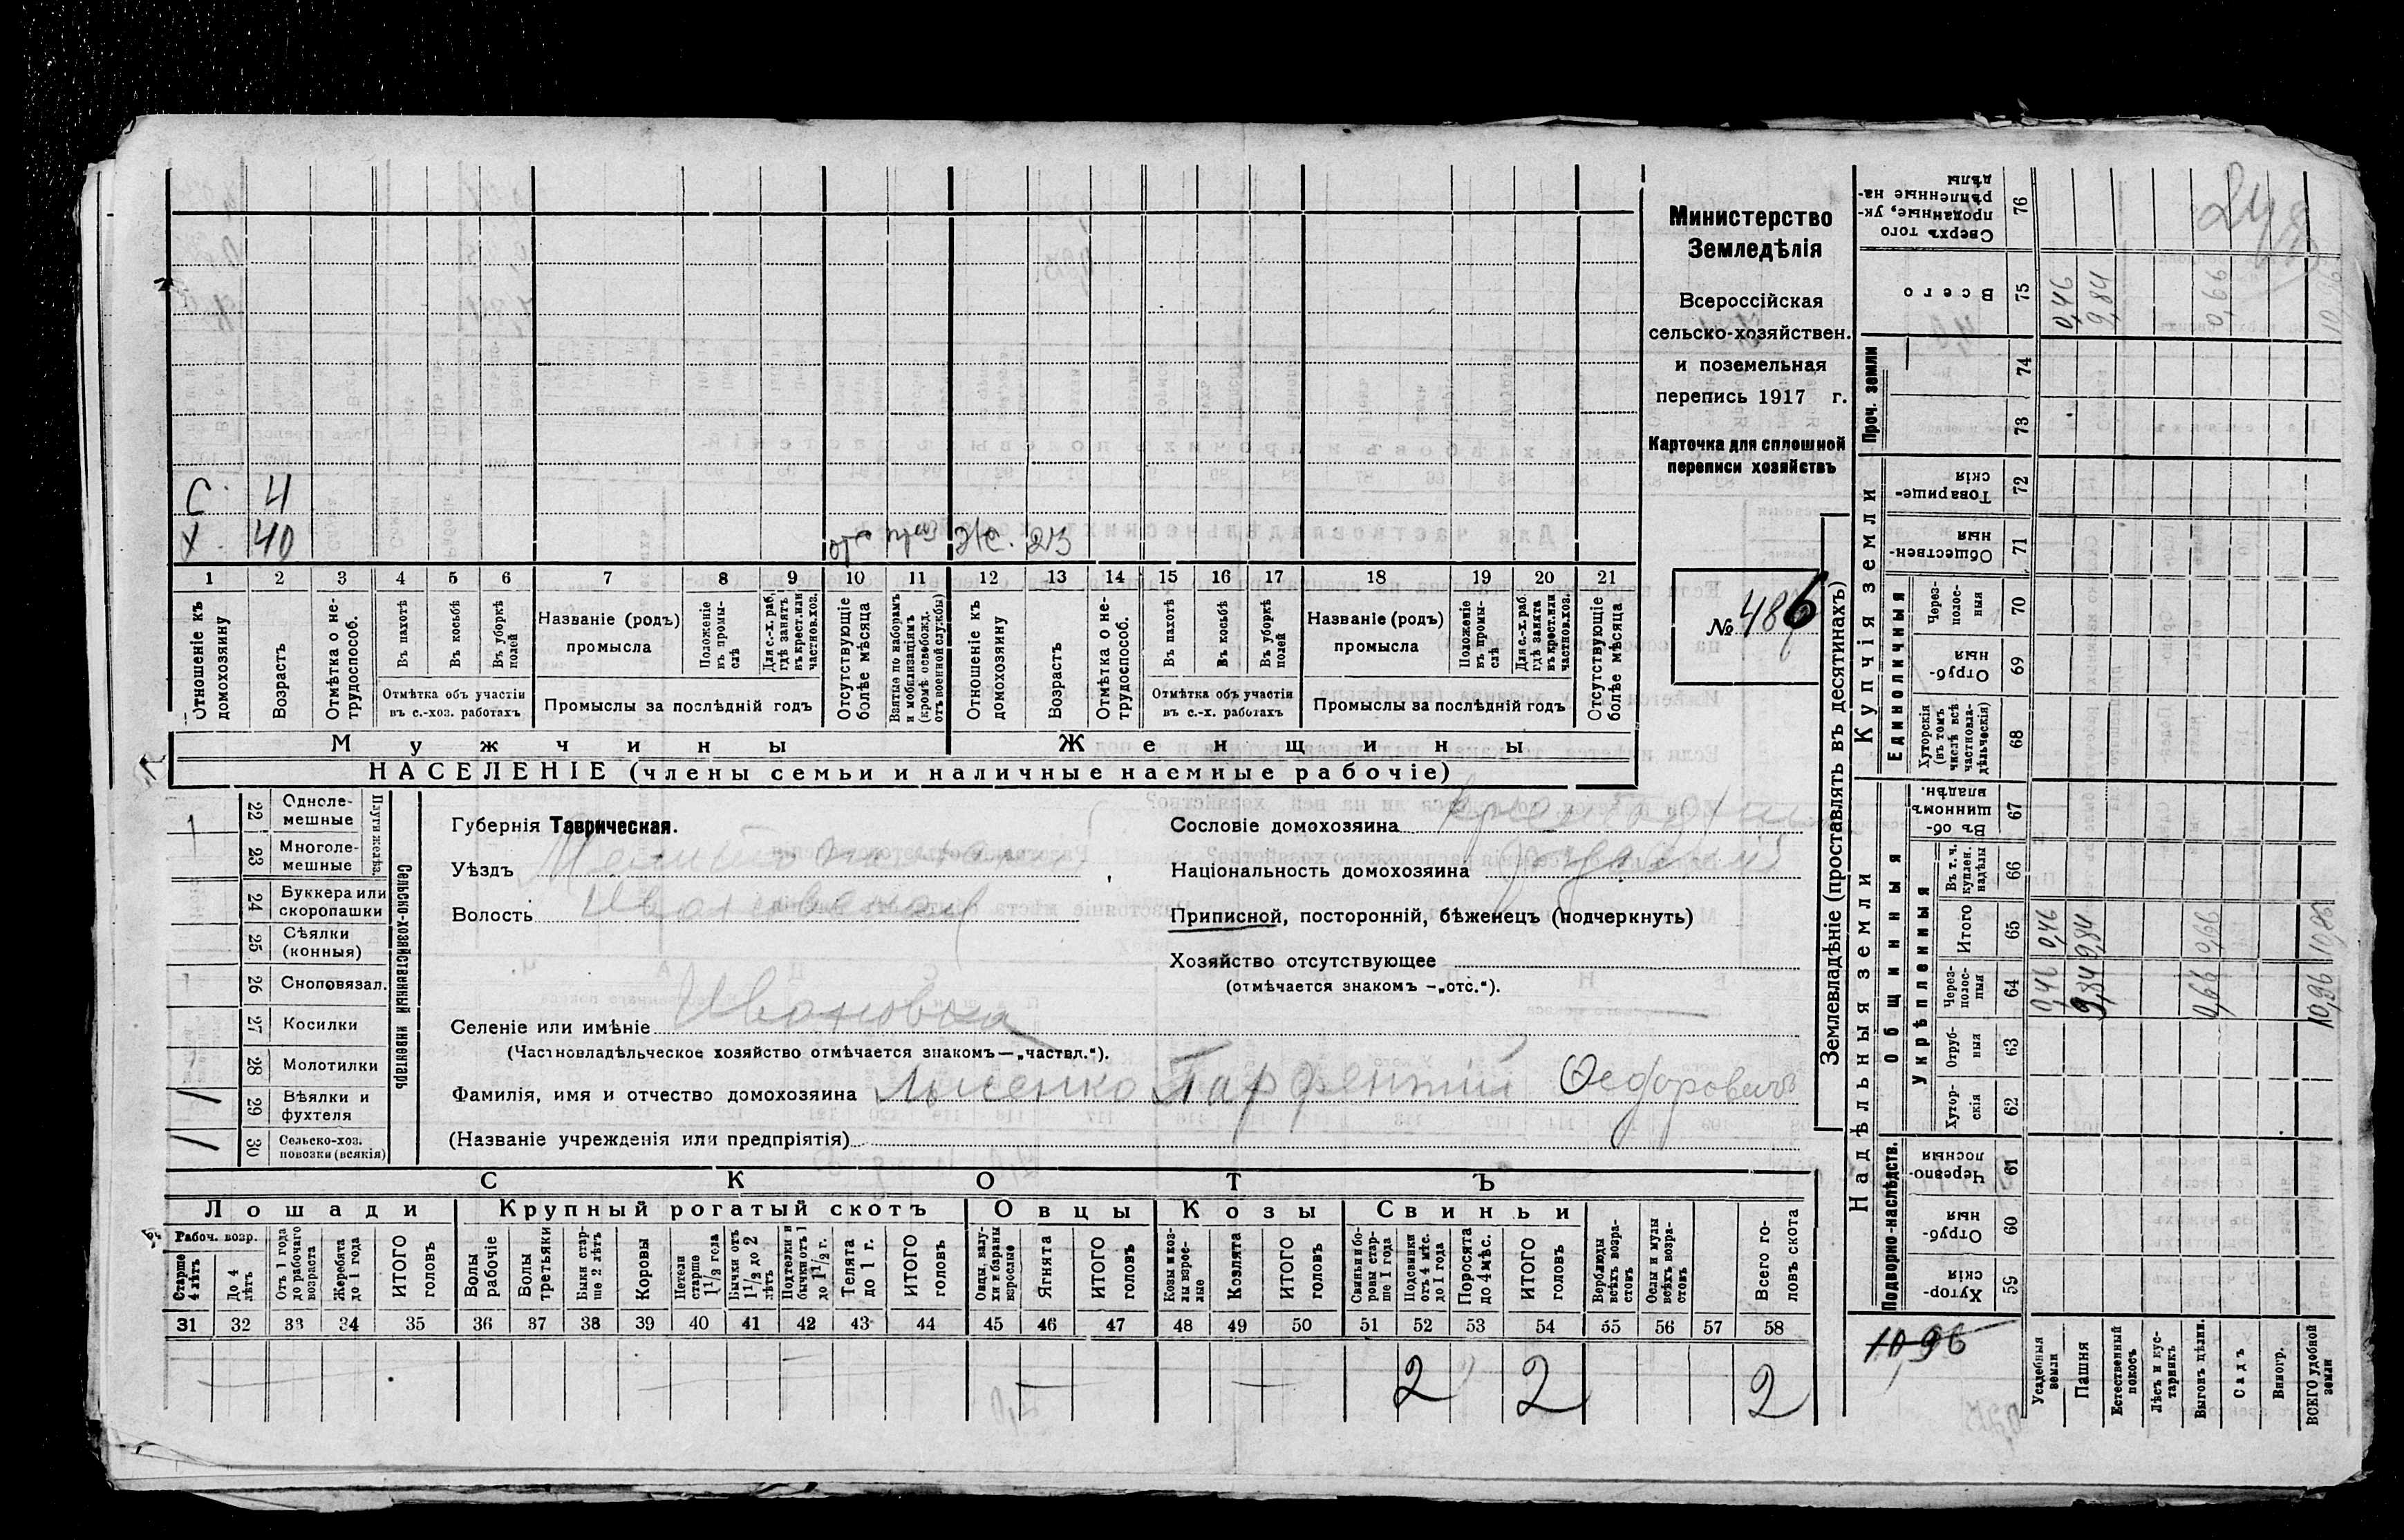 Министерство
Земледѣлія
Всероссійская
сельско-хозяйствен.
и поземельная
перепись 1917 г.
Карточка для сплошной
переписи хозяйствъ
№ 486
С. 4
Х. 40 Ж. 23
1 2 3 4 5 6 7 8 9 10 11 12 13 14 15 16 17 18 19 20 21
Отношеніе къ домохозяину
Возрастъ
Отмѣтка о не-трудоспособ.
Въ пахотѣ
Въ косьбѣ
Въ уборкѣ полей
Отмѣтка объ участіи
въ с.-хоз. работахъ
Названіе (родъ)
промысла
Положеніе въ промы-слѣ
Для с.-х. раб. гдѣ занятъ въ крест. или частнов. хоз.
Промыслы за послѣдній годъ
Отсутствующіе болѣе мѣсяца
Взятые по наборамъ и мобилизаціямъ (кромѣ освобожд. отъ военной службы)
Отношеніе къ домохозяину
Возрастъ
Отмѣтка о не-трудоспособ.
Въ пахотѣ
Въ косьбѣ
Въ уборкѣ полей
Отмѣтка объ участіи
въ с.-х. работахъ
Названіе (родъ)
промысла
Положеніе въ промы-слѣ
Для с.-х. раб. гдѣ занята въ крест. или частнов. хоз.
Промыслы за послѣдній годъ
Отсутствующіе болѣе мѣсяца
Мужчины Женщины
НАСЕЛЕНІЕ (члены семьи и наличные наемные рабочіе)
Сельско-хозяйственный инвентарь
Плуги желѣз.
22 Одноле-мешные 1
23 Многоле-мешные
24 Буккера или скоропашки
25 Сѣялки (конныя)
26 Сноповязал.
27 Косилки
28 Молотилки
29 Вѣялки и фухтеля /
30 Сельско-хоз. повозки (всякія) /
Губернія Таврическая.
Уѣздъ Мелитопольскій
Волость Ивановская
Селеніе или имѣніе Ивановка
(Частновладѣльческое хозяйство отмѣчается знакомъ—„частвл.“).
Фамилія, имя и отчество домохозяина Лысенко Парфентій Федоровичъ
(Названіе учрежденія или предпріятія)
Сословіе домохозяина
Національность домохозяина
Приписной, посторонній, бѣженецъ (подчеркнуть)
Хозяйство отсутствующее
(отмѣчается знакомъ —„отс.“).
СКОТЪ
Лошади Крупный рогатый скотъ Овцы Козы Свиньи
Рабоч. возр.
Старше 4 лѣтъ
До 4 лѣтъ
Отъ 1 года до рабочаго возраста
Жеребята до 1 года
ИТОГО головъ
Волы рабочіе
Волы третьяки
Быки стар-ше 2 лѣтъ
Коровы
Нетели старше 1 1/2 года
Бычки отъ 1 1/2 до 2 лѣтъ
Подтелки и бычки отъ 1 до 1 1/2 г.
Телята до 1 г.
ИТОГО головъ
Овцы, валу-хи и бараны взрослые
Ягнята
ИТОГО головъ
Козы и коз-лы взрос-лые
Козлята
ИТОГО головъ
Свиньи и бо-ровы стар-ше 1 года
Подсвинки отъ 4 мѣс. до 1 года
Поросята до 4 мѣс.
ИТОГО головъ
Верблюды всѣхъ возра-стовъ
Ослы и мулы всѣхъ возра-стовъ
Всего го-ловъ скота
31 32 33 34 35 36 37 38 39 40 41 42 43 44 45 46 47 48 49 50 51 52 53 54 55 56 57 58
2 2 2
Землевладѣніе (проставлять въ десятинахъ)
Надѣльныя земли Купчія земли Проч. земли
Подворно-наслѣдств. Общинныя
Укрѣпленныя Единоличныя
59 Хутор-скія
60 Отруб-ныя
61 Черезпо-лосныя
62 Хутор-скія
63 Отруб-ныя
64 Через-полос-ныя
65 Итого
66 Въ т. ч. куплен. надѣлы
67 Въ об-щинномъ владѣн.
68 Хуторскія (въ томъ числѣ всѣ частновла-дѣльческія)
69 Отруб-ныя
70 Через-полос-ныя
71 Обществен-ныя
72 Товарище-скія
73
74
75 Всего
76 Сверхъ того проданные, ук-рѣпленные на-дѣлы
Усадебныя земли 0,46 0,46 0,46
Пашня 9,84 9,84 9,84
Естественный покосъ
Лѣсъ и кус-тарникъ
Выгонъ цѣлин. 0,66 0,66 0,66
Садъ
Виногр.
ВСЕГО удобной земли 10,96 10,96 10,96
10 96